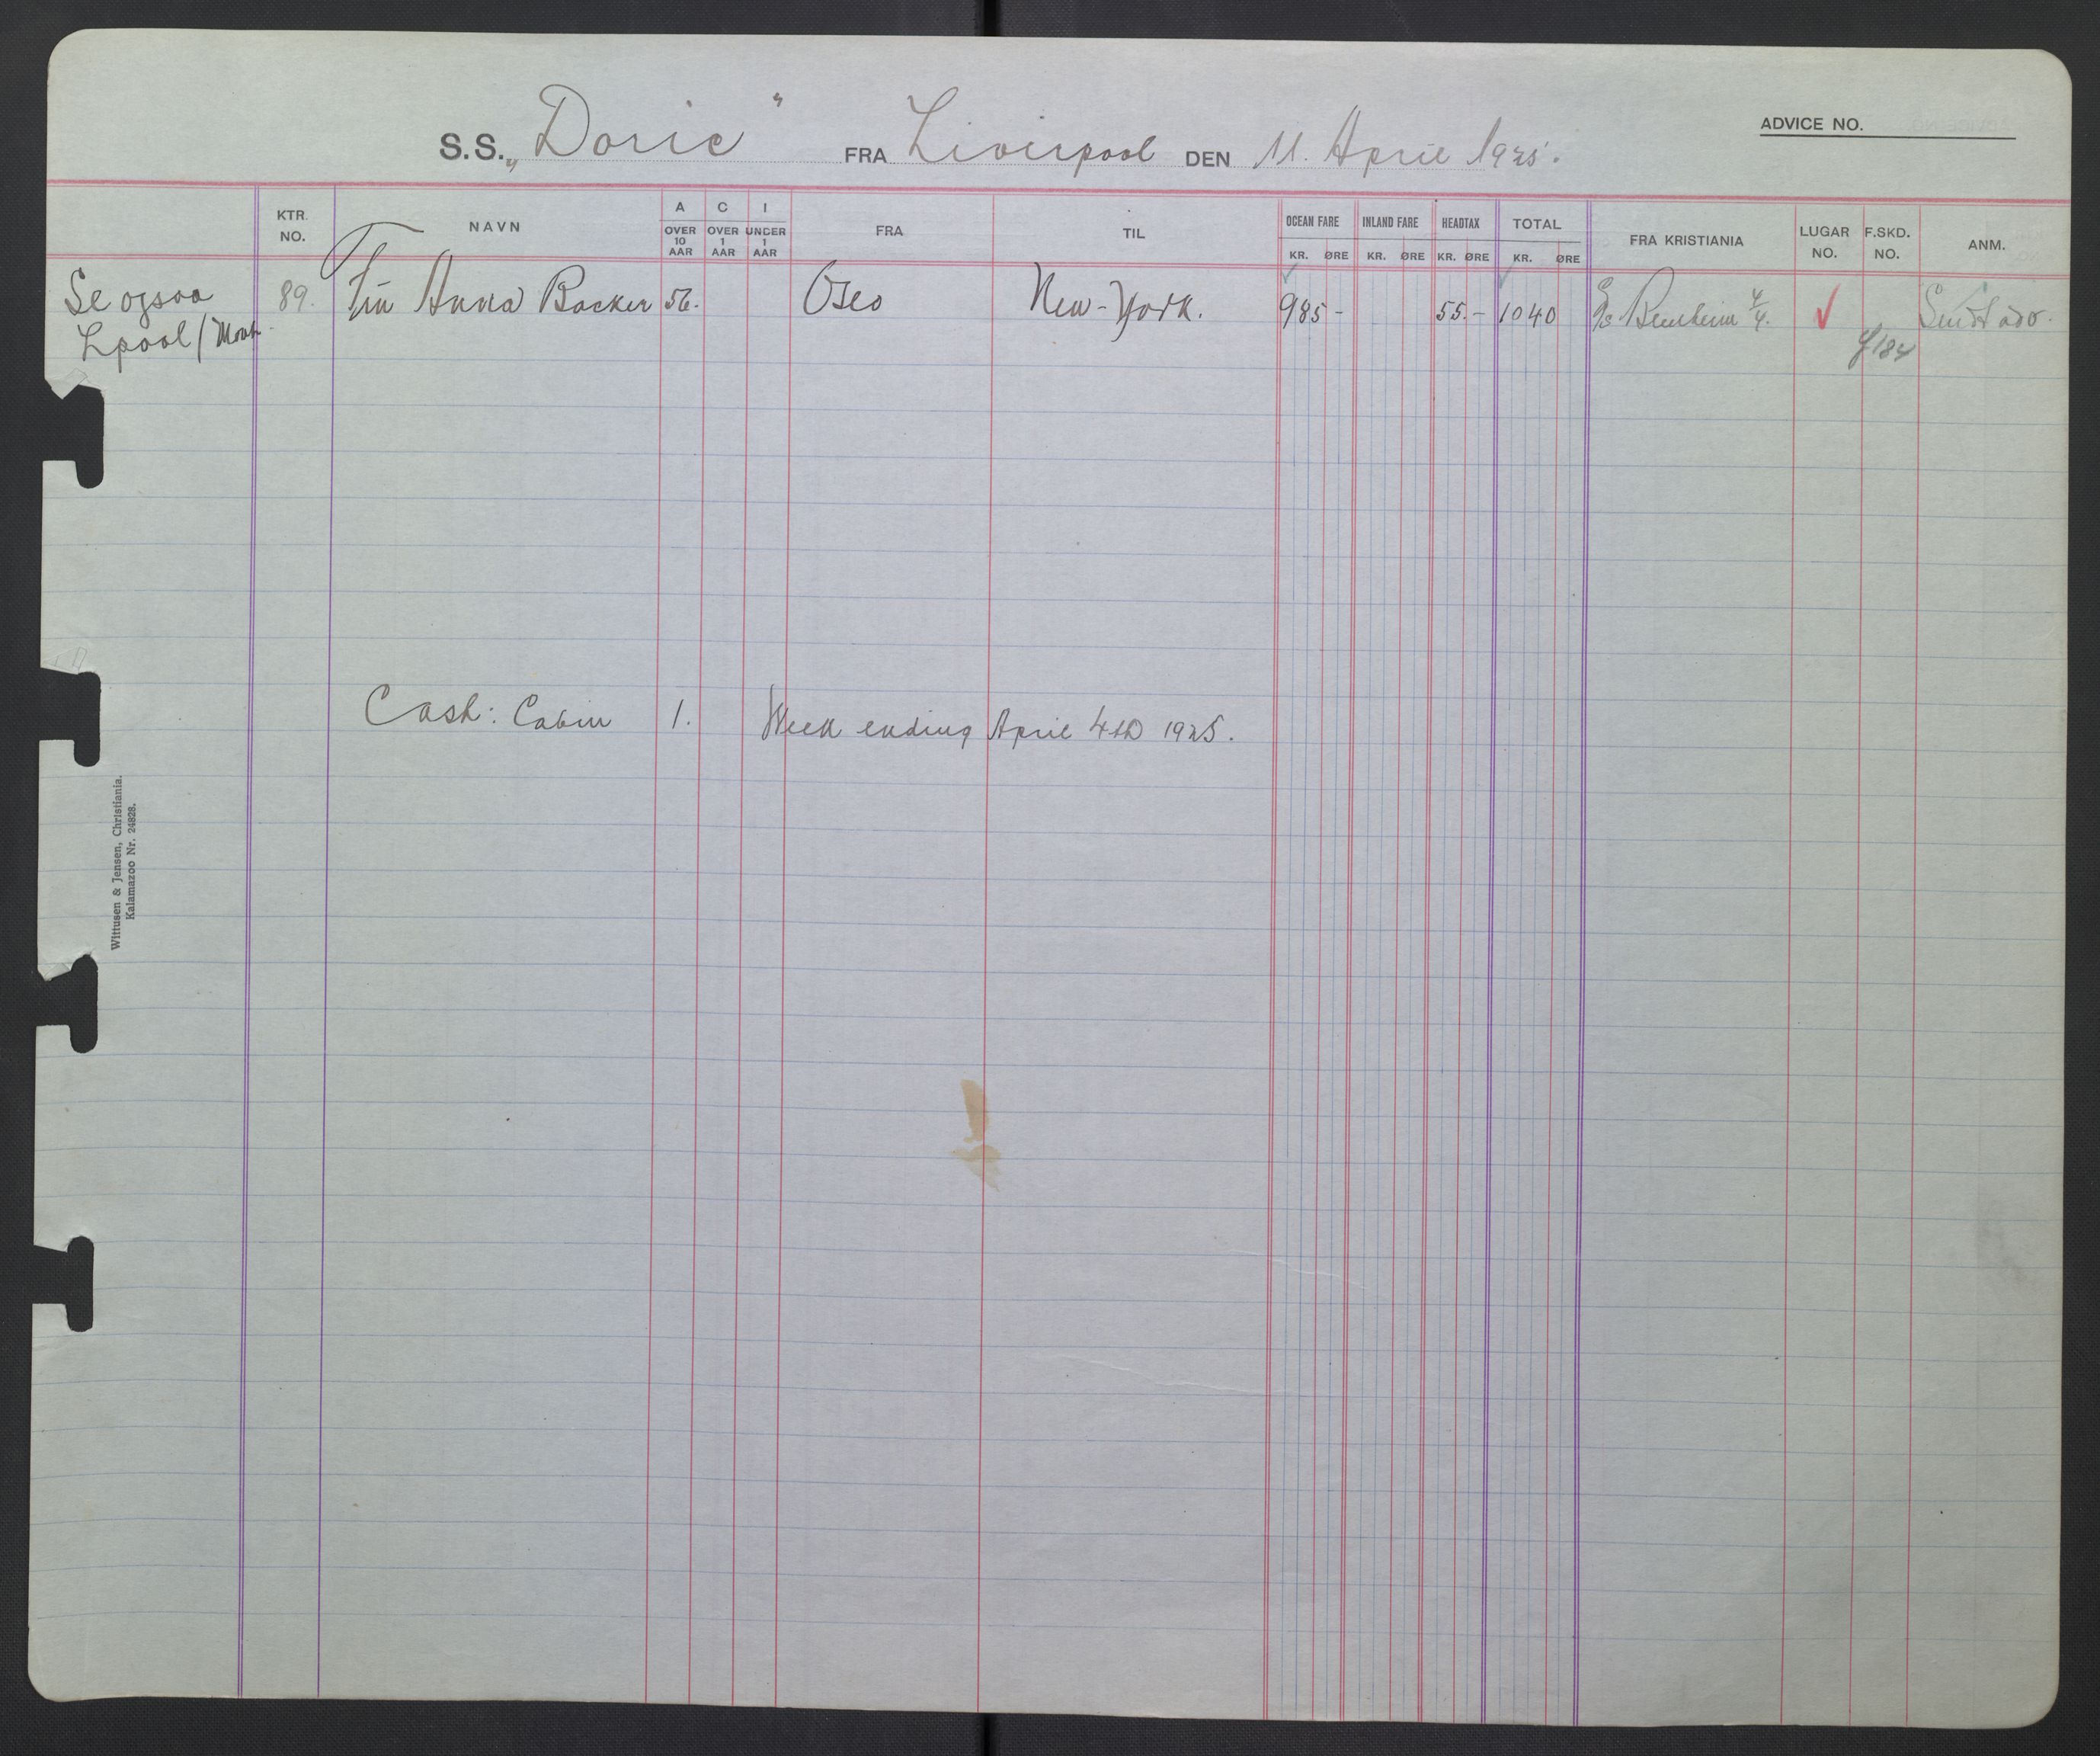 ADVICE NO.
S.S. „Doric" FRA Liverpool DEN 11. April 1925.
KTR. NO. NAVN A OVER 10 AAR C OVER 1 AAR I UNDER 1 AAR FRA TIL OCEAN FARE KR. ØRE INLAND FARE KR. ØRE HEADTAX KR. ØRE TOTAL KR. ØRE FRA KRISTIANIA LUGAR NO. F.SKD. NO. ANM.
Se ogsaa 89. Fru Anna Backer 56. Oslo New-York. 985- 55.- 1040 4/4.
Lpool/Mont. 184
Cash: Cabin 1. Week ending April 4th 1925.
Wittusen & Jensen, Christiania.
Kalamazoo Nr. 24828.